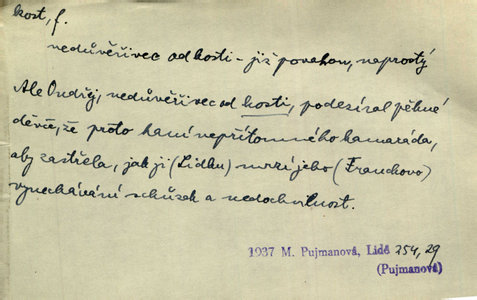 kost, f.
nedůvěřivec od kosti - již povahou, naprostý
Ale Ondřej, nedůvěřivec od kosti, podezíral pěkné
děvče, že proto haní nepřítomného kamaráda,
aby zastřela, jak ji (Lidku) mrzí jeho (Franckovo)
vynechávání schůzek a nedochvilnost.
1937 M. Pujmanová, Lidé 254, 29
(Pujmanová)